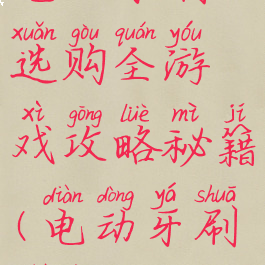 xuǎn gòu quán yóu
选购全游
xì gōng lüè mì jí
戏攻略秘籍
diàn dòng yá shuā
(电动牙刷